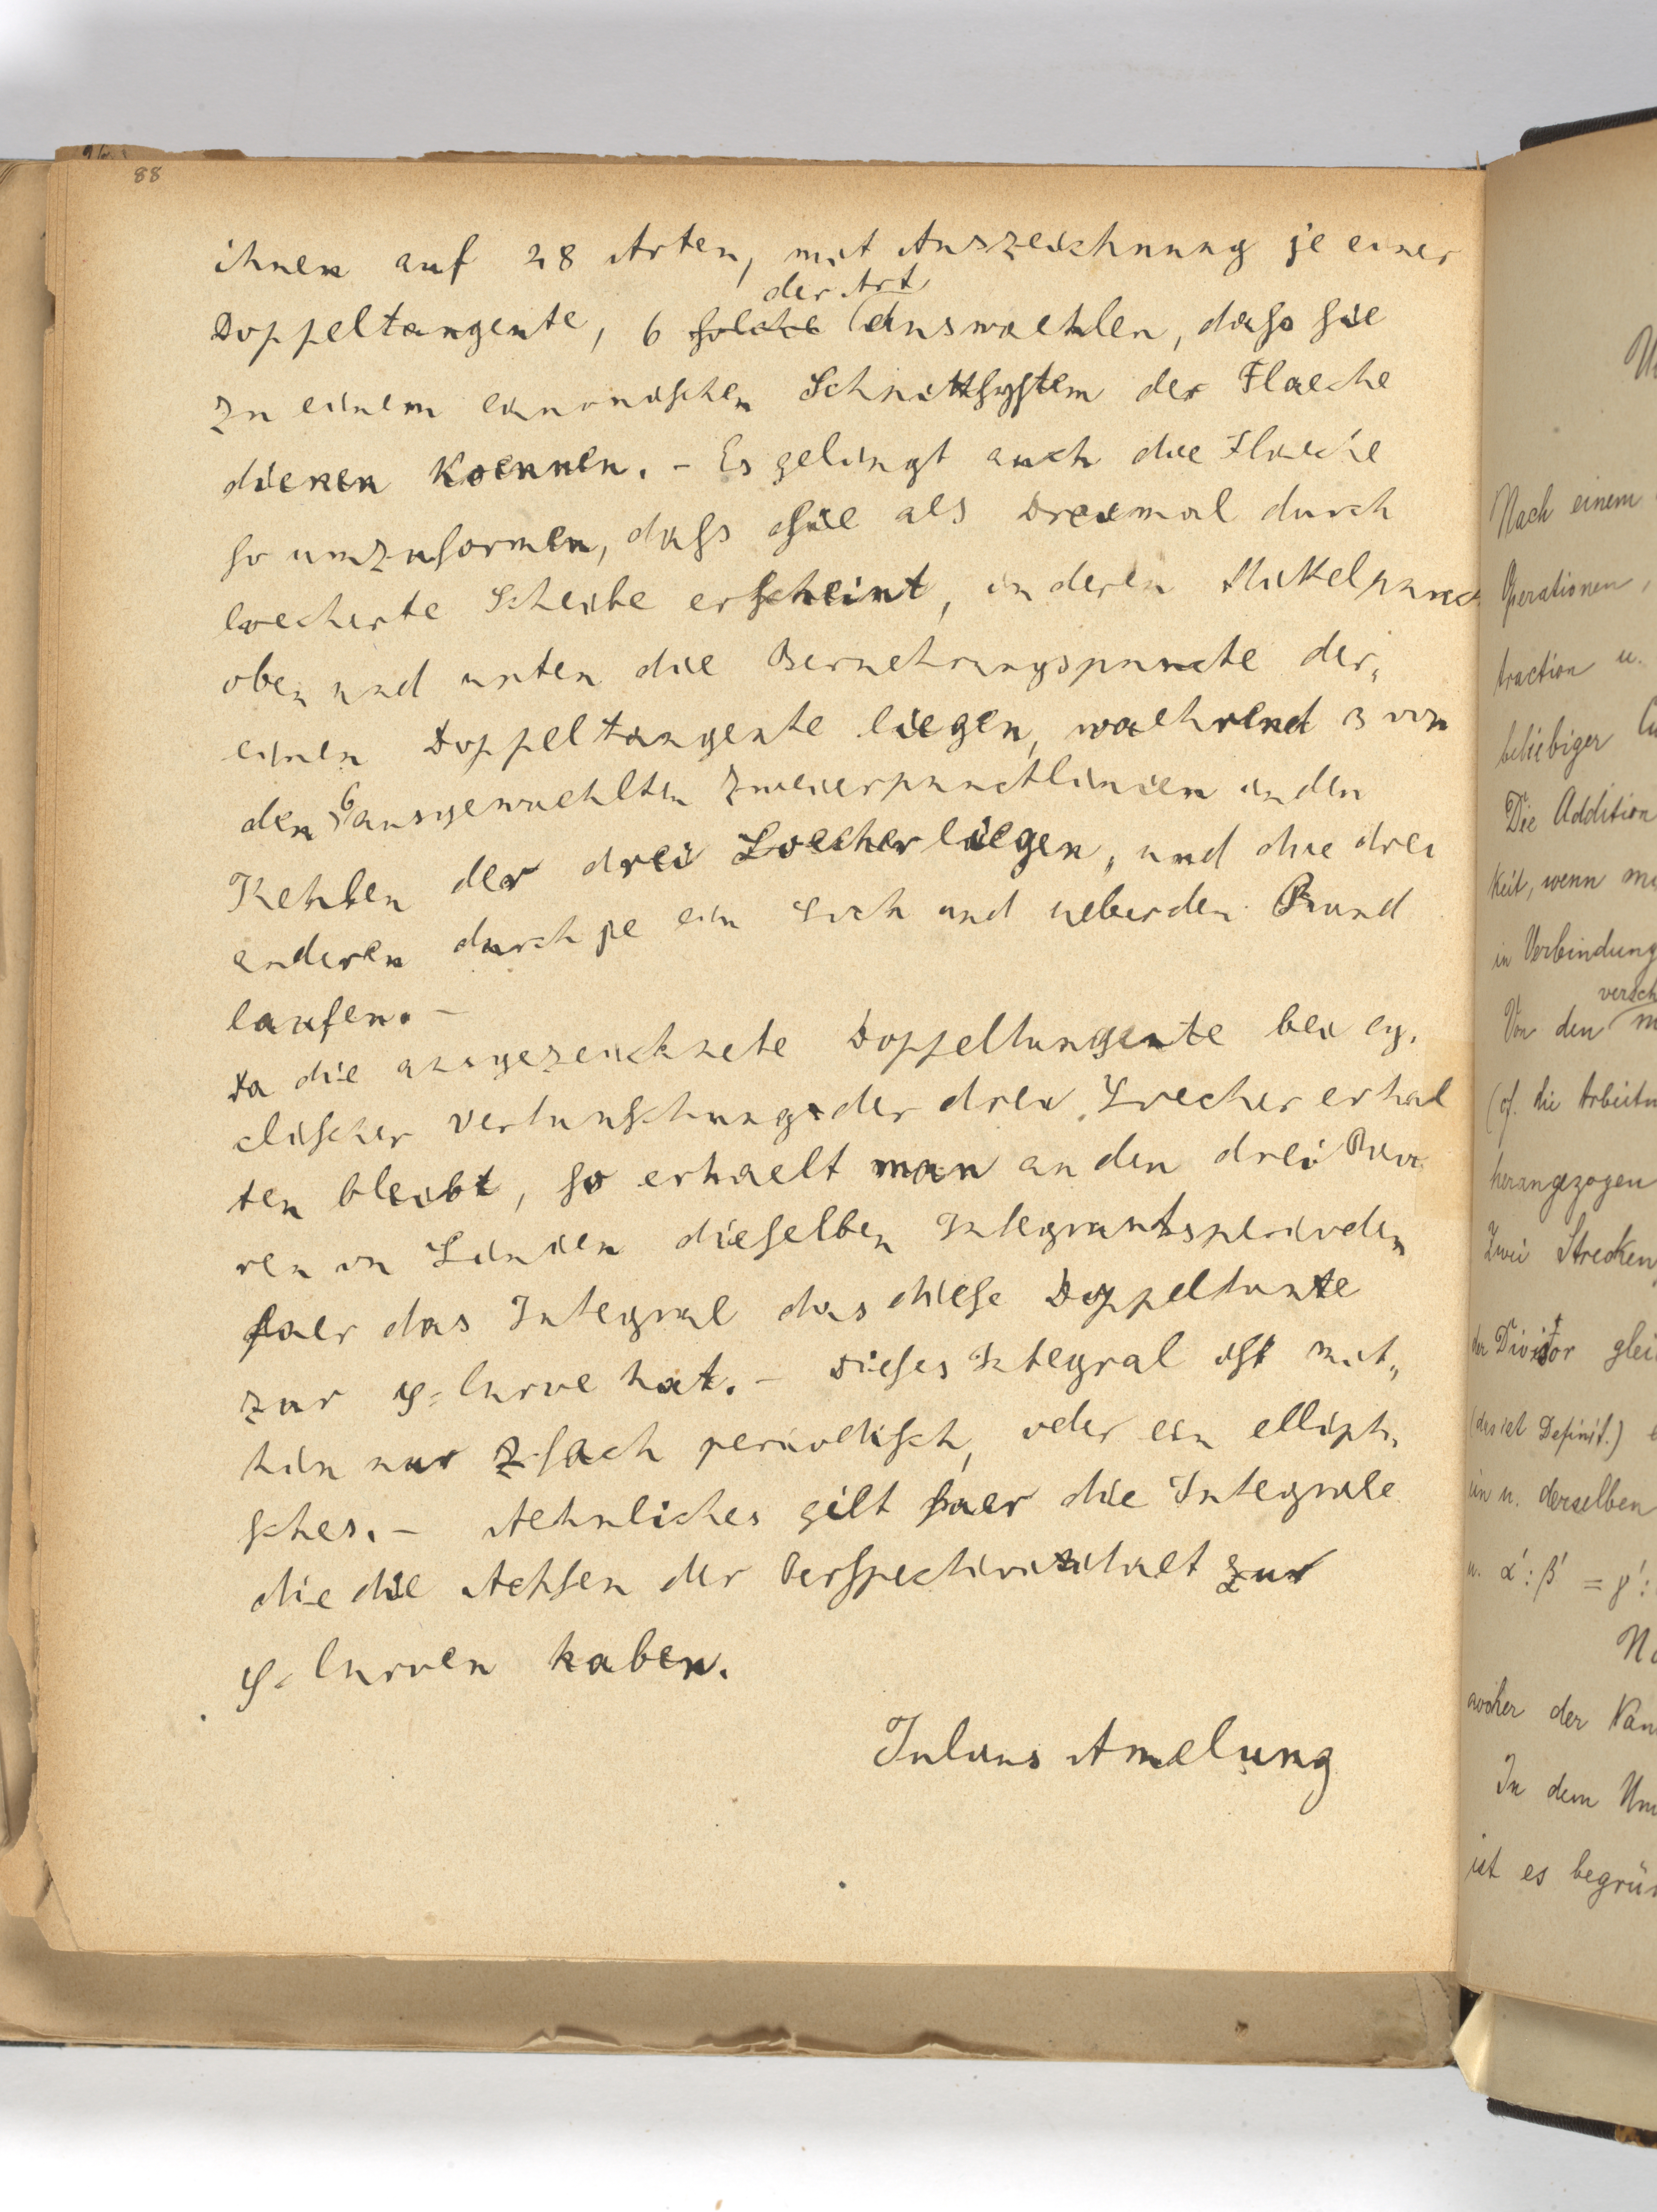 88
ihnen auf 28 Arten, mit Auszeichnung je einer
der Art
Doppeltangente, 6 solche auswaehlen, dass sie
zu einem canonischen Schnittsystem der Flaeche
dienen koennen. – Es gelingt auch die Flaeche
so umzuformen, dass sie als Dreimal durch
loecherte Scheibe erscheint, in deren Mittelpunct
oben und unten die Beruehrungspuncte der
einen Doppeltangente liegen, waehrend 3 von
den 6 ausgewaehlten Zweierpunctlinien in den
Kehlen der drei Loecher liegen, und die drei
anderen durch je ein Loch und ueber den Rand
laufen. –
Da die ausgezeichnete Doppeltangente bei cy-
clischer Vertauschung der drei Loecher erhal
ten bleibt, so erhaelt man an den drei Paa
ren von Linien dieselben Integrantsperioden
fuer das Integral das diese Doppeltante
zur φ-Curve hat. – Dieses Integral ist mit-
hin nur 2-fach periodisch, oder ein ellipti-
sches. – Aehnliches gilt fuer die Integrale
die die Achsen der Perspectivitaet zur
φ-Curven haben.
Julius Amelung
Nach einem
Operationen,
traction u.
beliebiger
Die Addition
keit, wenn
in Verbindung
Von den
(cf. die
herangezogen
Zwei Strecken
der Divisor
(das ist Definit.)
in u. derselben
u. α':β' = γ':
der
In dem
ist es